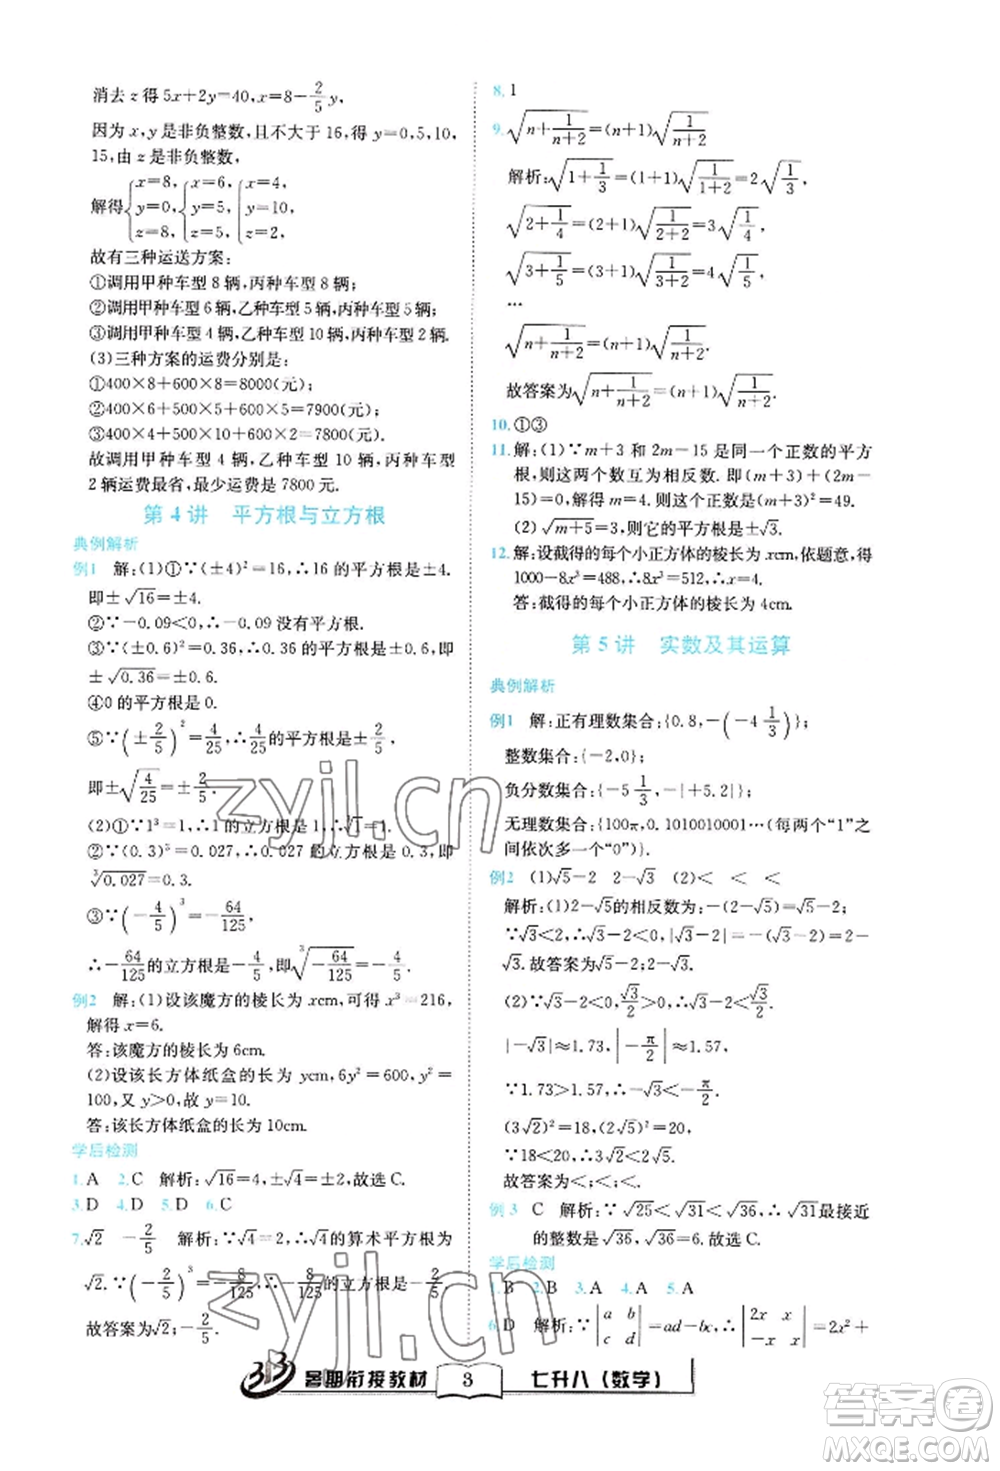 消去 z 得 5x+2y=40,x=8-2/5y,
因为 x,y 是非负整数,且不大于 16,得 y=0,5,10,
15,由 z 是非负整数,
解得{x=8,y=0,z=8,{x=6,y=5,z=5,{x=4,y=10,z=2,
故有三种运送方案:
①调用甲种车型 8 辆,丙种车型 8 辆;
②调用甲种车型 6 辆,乙种车型 5 辆,丙种车型 5 辆;
③调用甲种车型 4 辆,乙种车型 10 辆,丙种车型 2 辆.
(3)三种方案的运费分别是:
①400×8+600×8=8000(元);
②400×6+500×5+600×5=7900(元);
③400×4+500×10+600×2=7800(元).
故调用甲种车型 4 辆,乙种车型 10 辆,丙种车型
2 辆运费最省,最少运费是 7800 元.
第 4 讲 平方根与立方根
典例解析
例1 解:(1)①∵(±4)²=16,∴16 的平方根是±4.
即±√16=±4.
②∵-0.09<0,∴-0.09 没有平方根.
③∵(±0.6)²=0.36,∴0.36 的平方根是±0.6,即
±√0.36=±0.6.
④0 的平方根是 0.
⑤∵(±2/5)²=4/25,∴4/25的平方根是±2/5,
即±√(4/25)=±2/5.
(2)①∵1³=1,∴1 的立方根是 1,
②∵(0.3)³=0.027,∴0.027 的立方根是 0.3,即
³√0.027=0.3.
③∵(-4/5)³=-64/125,
∴-64/125的立方根是-4/5,即³√(-64/125)=-4/5.
例2 解:(1)设该魔方的棱长为 xcm,可得 x³=216,
解得 x=6.
答:该魔方的棱长为 6cm.
(2)设该长方体纸盒的长为 ycm,6y²=600,y²=
100,又 y>0,故 y=10.
答:该长方体纸盒的长为 10cm.
学后检测
1.A 2.C 解析:√16=4,±√4=±2,故选 C.
3.D 4.D 5.D 6.C
7.√2 -2/5 解析:∵√4=2,∴√4的算术平方根为
√2.∵(-2/5)³=-8/125,∴-8/125的立方根是-2/5.
故答案为√2,-2/5.
8.1
9.√(n+1/(n+2))=(n+1)√(1/(n+2))
解析:√(1+1/3)=(1+1)√(1/(1+2))=2√(1/3),
√(2+1/4)=(2+1)√(1/(2+2))=3√(1/4),
√(3+1/5)=(3+1)√(1/(3+2))=4√(1/5),
…
√(n+1/(n+2))=(n+1)√(1/(n+2)).
故答案为√(n+1/(n+2))=(n+1)√(1/(n+2)).
10.①③
11.解:(1)∵m+3 和 2m-15 是同一个正数的平方
根,则这两个数互为相反数.即(m+3)+(2m-
15)=0,解得 m=4.则这个正数是(m+3)²=49.
(2)√(m+5)=3,则它的平方根是±√3.
12.解:设截得的每个小正方体的棱长为 xcm,依题意,得
1000-8x³=488,∴8x³=512,∴x=4.
答:截得的每个小正方体的棱长为 4cm.
第 5 讲 实数及其运算
典例解析
例1 解:正有理数集合:{0.8,-(-4 1/3)};
整数集合:{-2,0};
负分数集合:{-5 1/3,-|+5.2|};
无理数集合:{100π,0.1010010001…(每两个“1”之
间依次多一个“0”)}.
例2 (1)√5-2 2-√3 (2)< < <
解析:(1)2-√5的相反数为:-(2-√5)=√5-2;
∵√3<2,∴√3-2<0,|√3-2|=-(√3-2)=2-
√3.故答案为:√5-2;2-√3.
(2)∵√3-2<0,√3/2>0,∴√3-2<√3/2;
|-√3|≈1.73,|-π/2|≈1.57,
∵1.73>1.57,∴-√3<-π/2;
(3√2)²=18,(2√5)²=20,
∵18<20,∴3√2<2√5.
故答案为:<;<;<.
例 3 C 解析:∵√25<√31<√36,∴√31最接近
的整数是√36,即 6.故选 C.
学后检测
1.B 2.B 3.A 4.A 5.A
6.D 解析:∵|a b; c d|=ad-bc,∴|2x x; -x x|=2x²+
暑期衔接教材
3
七升八(数学)
zyjl.cn
zyjl.cn
答案圈
MXQE.COM